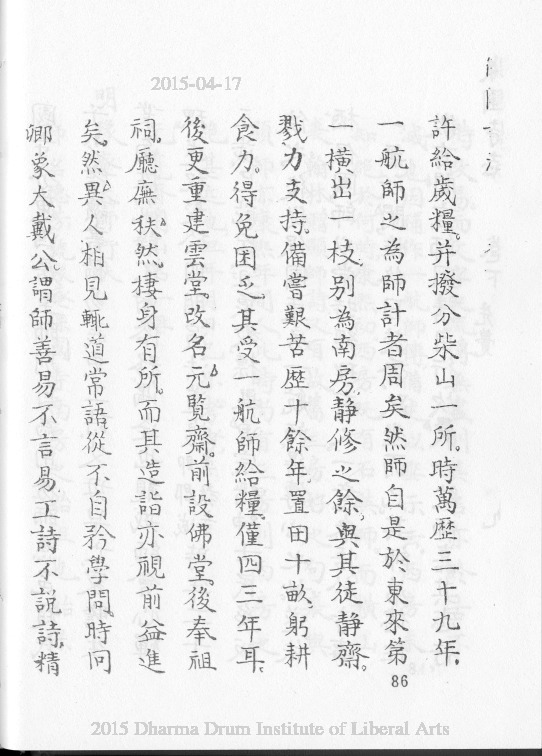 2015-04-17
許給歲糧。并撥分柴山一所。時萬歷三十九年。
一航師之為師計者周矣。然師自是於東來第
一橫出一枝。别為南房。靜修之餘。與其徒靜齋。
戮力支持。備嘗艱苦。歷十餘年。置田十畝。躬耕
食力。得免困乏。其受一航師給糧。僅四三年耳。
後更重建雲堂。改名元覽齋。前設佛堂。後奉祖
祠。廳廡秩然。棲身有所。而其造詣亦視前益進
矣。然異人相見輒道常語。從不自矜學問。時同
鄉象大戴公。謂師善易不言易。工詩不說詩。精
86
2015 Dharma Drum Institute of Liberal Arts